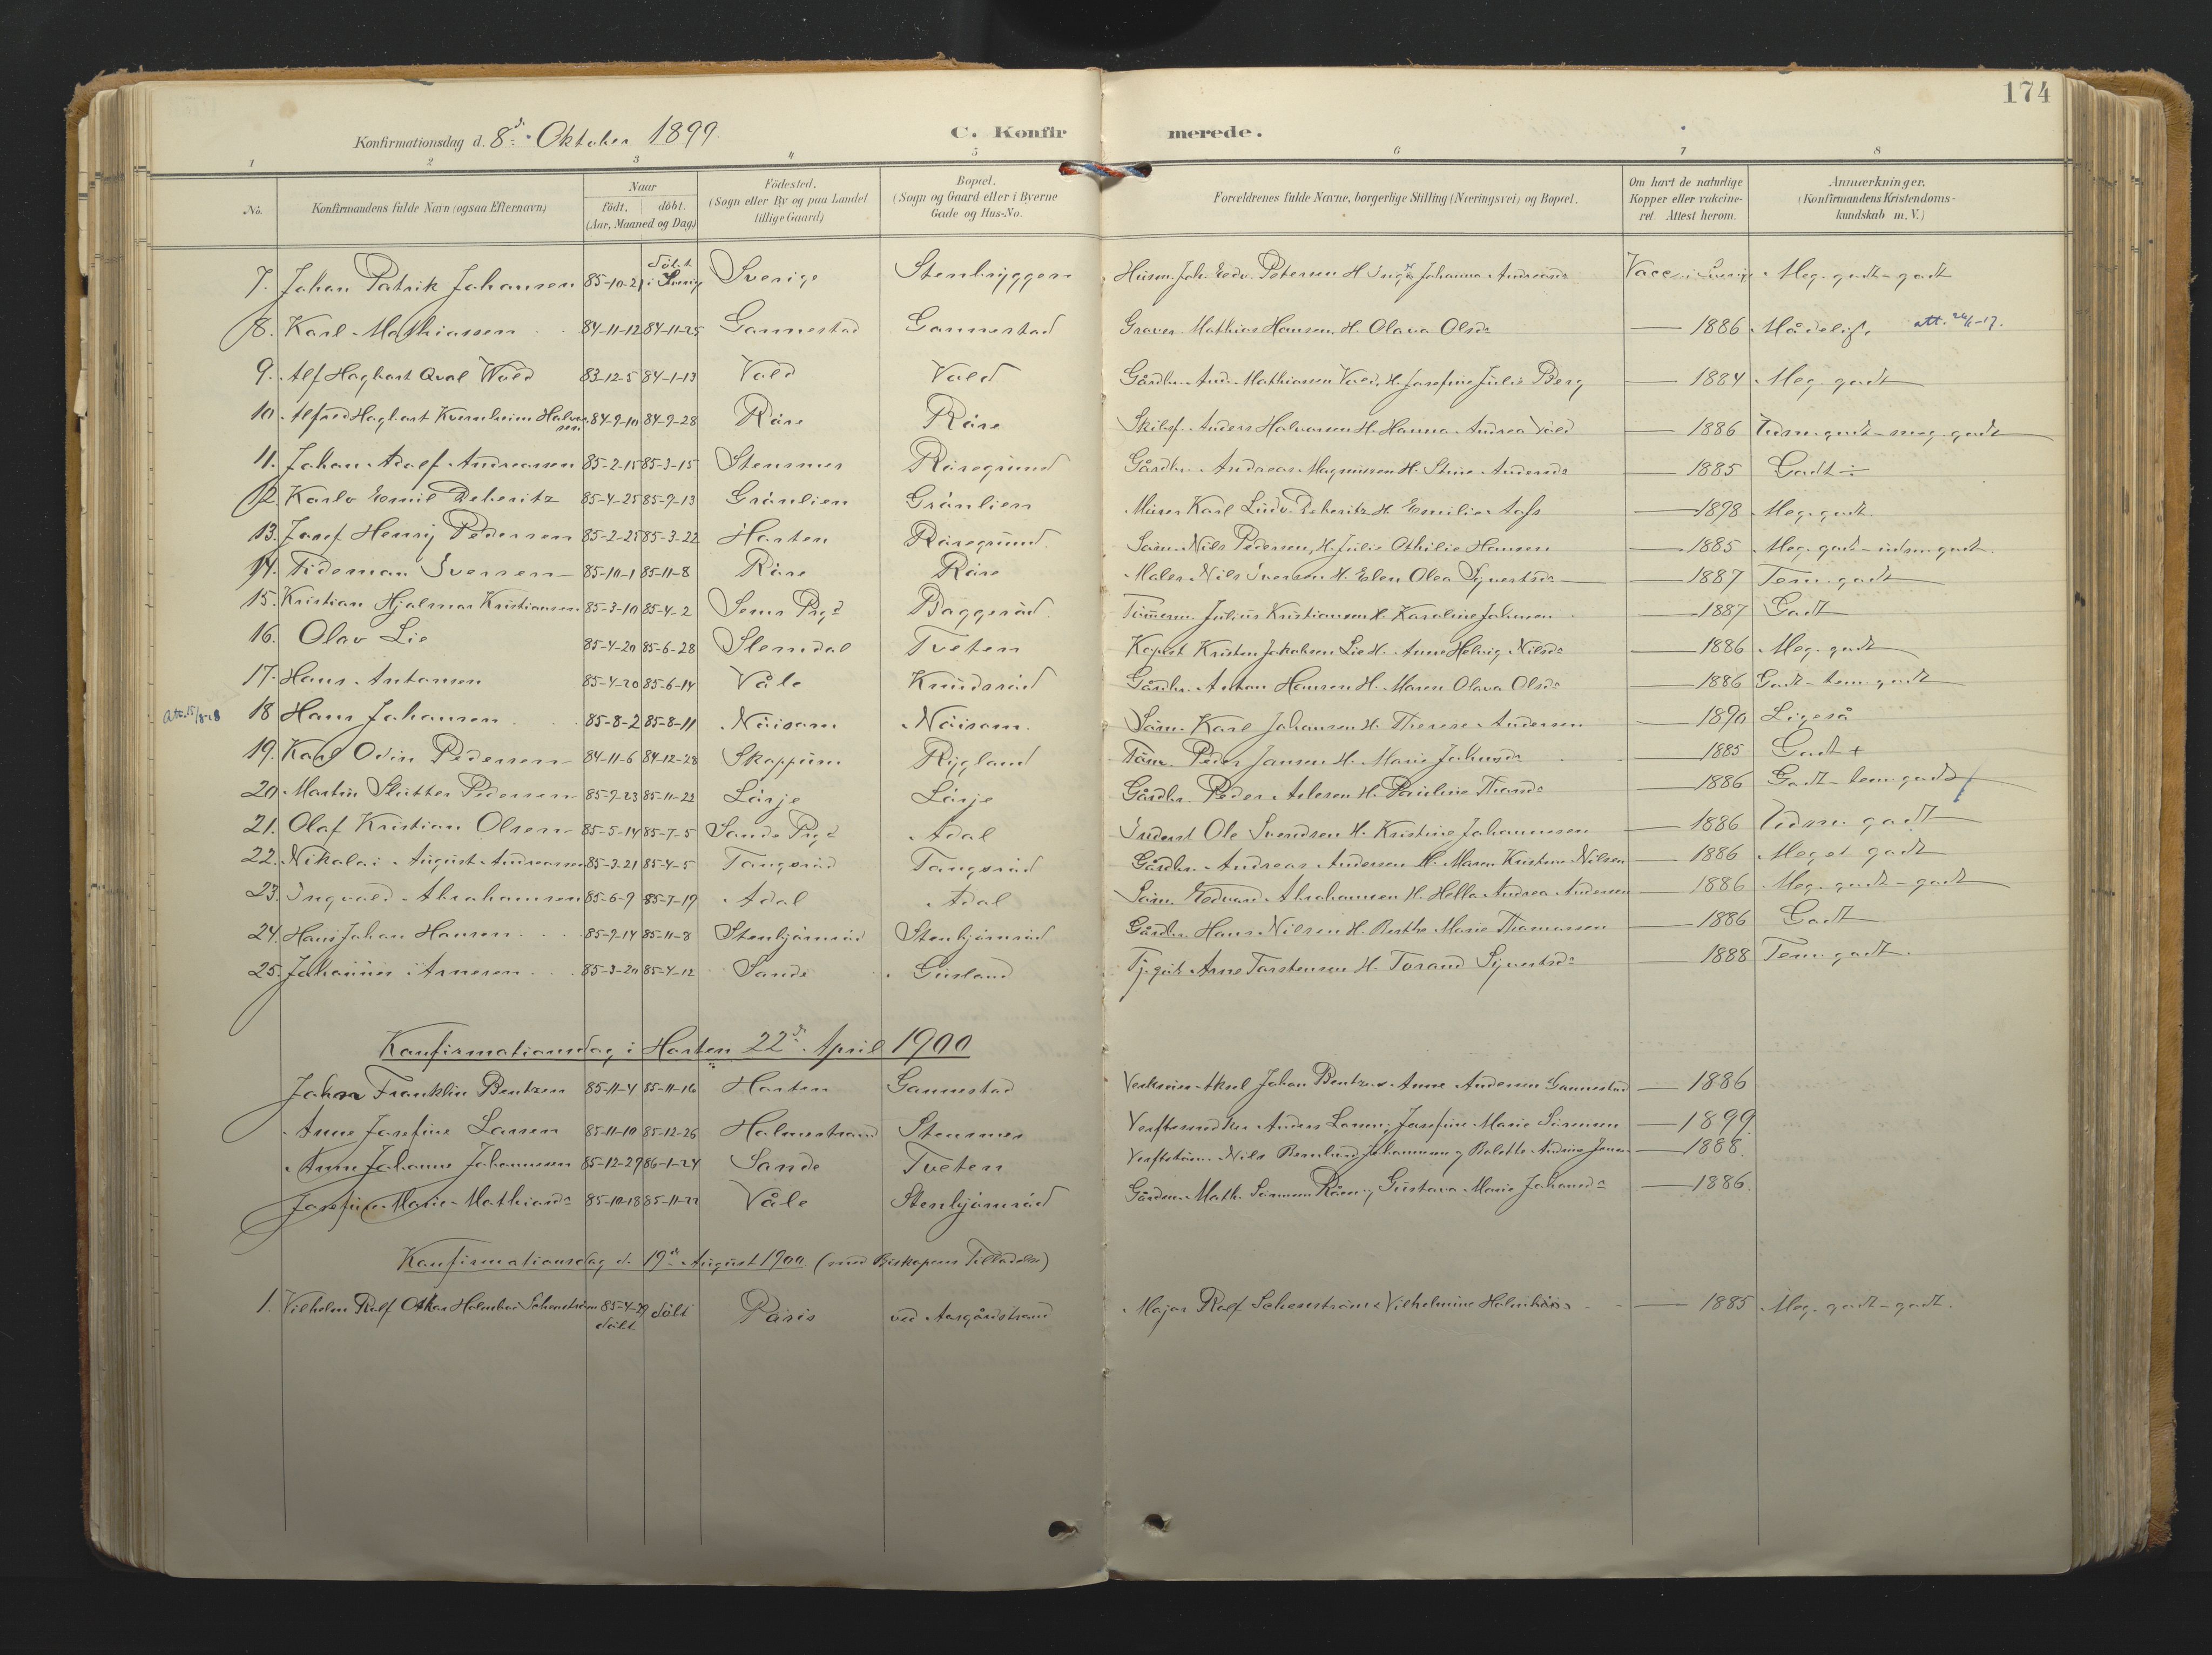 174
Konfirmationsdag d. 8de Oktober 1899.
C. Konfirmerede.
1 2 3 4 5 6 7 8
No.
Konfirmandens fulde Navn (ogsaa Efternavn)
Naar
födt. döbt.
(Aar, Maaned og Dag)
Födested.
(Sogn eller By og paa Landet
tillige Gaard)
Bopæl.
(Sogn og Gaard eller i Byerne
Gade og Hus-No.
Forældrenes fulde Navne, borgerlige Stilling (Næringsvei) og Bopæl.
Om havt de naturlige
Kopper eller vakcine-
ret Attest herom.
Anmærkninger.
(Konfirmandens Kristendoms-
kundskab m. V.)
7. Johan Patrik Johansen 85-10-21 döbt i Sverig Sverige Stenbryggen Husm. Joh. Edv. Petersen H. Inga Johanna Andreasd. Vacc. i Sverig Meg. godt - godt
8. Karl Mathiassen 84-11-12 84-11-25 Gannestad Gannestad Graver Mathias Hansen, H. Olava Olsd. — 1886 Mådelig. att. 26/6-17.
9. Alf Hagbart Qval Wold 83-12-5 84-1-13 Vold Vold Gårdbr. And. Mathiassen Vold, H. Josefine Julie Berg — 1884 Meg. godt
10. Alfred Hagbart Kvernheim Halvorsen 84-9-10 84-9-28 Råre Råre Skibsf. Anders Halvorsen H. Hanna Andrea Vold — 1886 Udm. godt - meg. godt
11. Johan Adolf Andreassen 85-2-15 85-3-15 Stensmes Råregrund Gårdbr. Andreas Magnussen H. Stine Andersd. — 1885 Godt ÷
12. Karlo Emil Deberitz 85-4-25 85-9-13 Grönlien Grönlien Murer Karl Ludv. Deberitz H. Emilie Aass — 1898 Meg. godt.
13. Josef Henry Pedersen 85-2-25 85-3-22 Horten Råregrund. Söm. Nils Pedersen, H. Julie Othilie Hansen — 1885 Meg. godt - udm. godt.
14. Tideman Iversen 85-10-1 85-11-8 Råre Råre Maler Nils Iversen H. Elen Olea Syvertsd. — 1887 Tem. godt
15. Kristian Hjalmar Kristiansen 85-3-10 85-4-2 Sems Prgd. Baggeröd. Tömmerm. Julius Kristiansen H. Karoline Johnsen — 1887 Godt
16. Olav Lie 85-4-20 85-6-28 Slemdal Tveten Kapest Kristen Jakobsen Lie H. Anne Helvig Nilsd. — 1886 Meg. godt
17. Hans Antonsen 85-4-20 85-6-14 Våle Knudsröd Gårdbr. Anton Hansen H. Maren Olava Olsd. — 1886 Godt - tem. godt
att. 15/8-18 18 Hans Johansen 85-8-2 85-8-11 Nöisom Nöisom. Söm. Karl Johansen H. Therese Andersen — 1890 Ligeså
19. Karl Odin Pedersen 84-11-6 84-12-28 Skoppum Rygland Töm. Peder Jansen H. Marie Johnsd. 1885 Godt +
20. Martin Slutter Pedersen 85-9-23 85-11-22 Lörje Lörje Gårdbr. Peder Aslesen H. Pauline Thorsd. — 1886 Godt - tem. godt
21. Olaf Kristian Olsen 85-5-14 85-7-5 Sande Prgd. Adal Inderst Ole Svendsen H. Kristine Johannesen — 1886 Udm. godt
22. Nikolai August Andreassen 85-3-21 85-4-5 Tangsröd Tangsröd Gårdbr. Andreas Andersen H. Maren Kristine Nilsen — 1886 Meget godt
23. Ingvald Abrahamsen 85-6-9 85-7-19 Adal Adal Söm. Edvard Abrahamsen H. Hella Andrea Andersen — 1886 Meg. godt - godt
24. Hans Johan Hansen 85-9-14 85-11-8 Stenbjörnröd Stenbjörnröd Gårdbr. Hans Nilsen H. Berthe Marie Thomassen — 1886 Godt
25. Johannes Arnesen 85-3-20 85-4-12 Sande Gusland Tj.gut Arne Torstensen H. Torand Syvertsd. — 1888 Tem. godt.
Konfirmationsdag i Horten 22de April 1900
Johan Franklin Bentzen 85-11-4 85-11-16 Horten Gannestad Johan Bentzen Anne Andersen Gannestad — 1886
Anne Josefine Larsen 85-11-10 85-12-26 Holmestrand Stensmes Anders Larsen, Josefine Marie — 1899
Anne Johanne Johannesen 85-12-29 86-1-24 Sande Tveten Nils Johannesen — 1888.
Josefine Marie Mathiasd. 85-10-18 85-11-22 Våle Stenbjörnröd Gårdm. Math. Gustava Marie Johansd. — 1886.
Konfirmationsdag d. 19de August 1900. (med Biskopens Tilladelse)
1. Vilhelm Rolf Oskar Schenström 85-4-29 födt döbt Paris ved Aasgårdstrand Major Rolf Schenström & Vilhelmine — 1885 Meg. godt - godt.